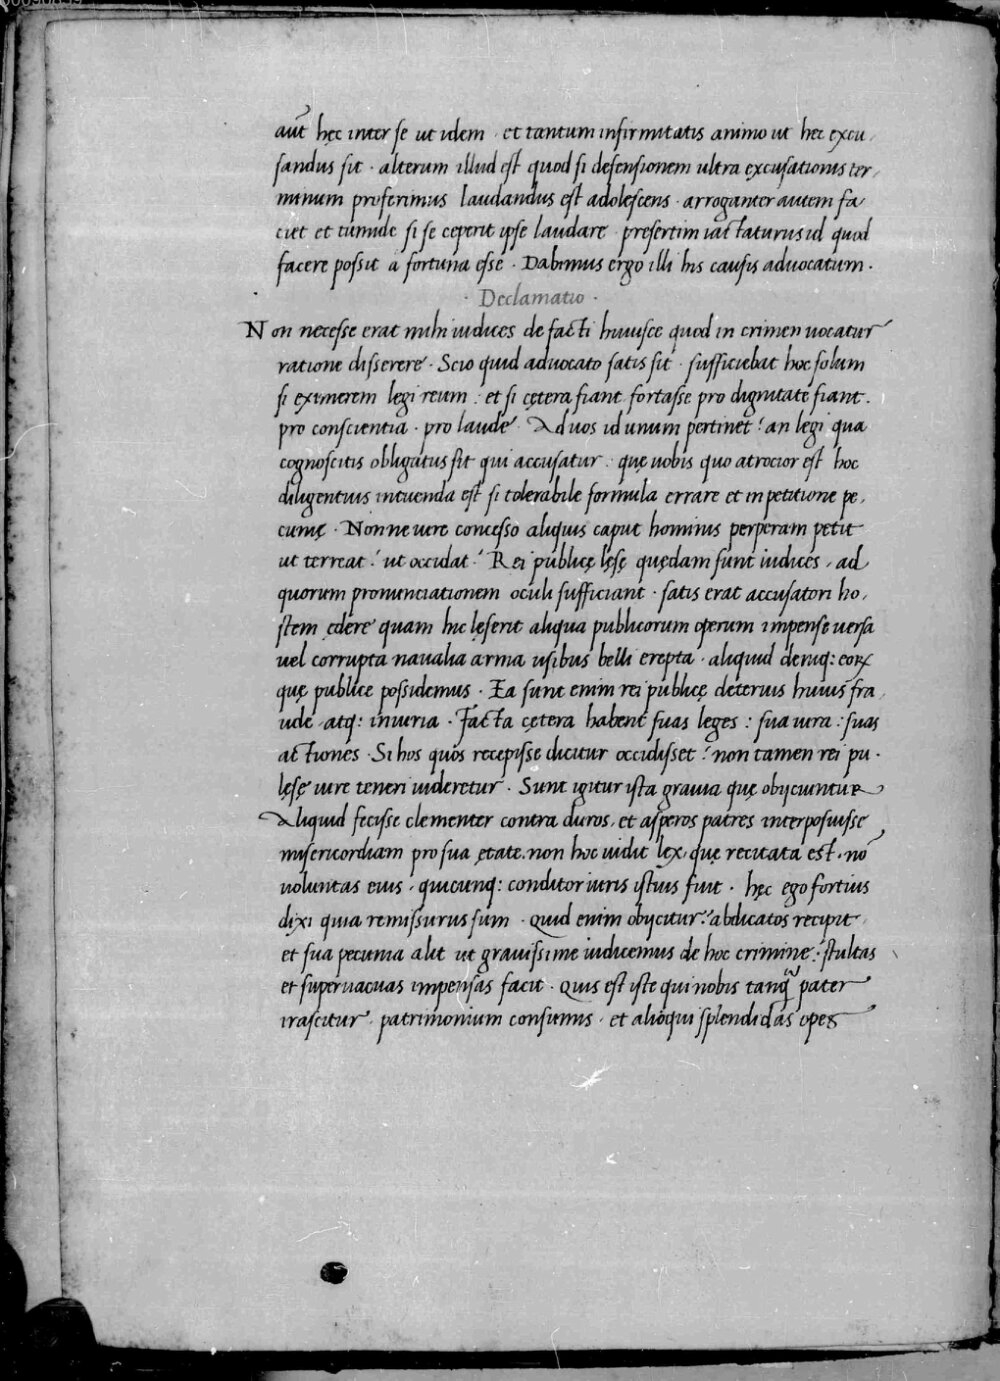 aut̃ hęc inter se ut idem · et tantum infirmitatis animo ut hec excu,
sandus sit · alterum illud est quod si defensionem ultra excusationis ter,
minum proferimus laudandus est adolescens · arroganter autem fa,
ciet et tumide si se ceperit ipse laudare presertim iactaturus id quod
facere possit a fortuna esse · Dabimus ergo illi his causis advocatum ·
· Declamatio ·
Non necesse erat mihi iudices de facti huiusce quod in crimen uocatur
ratione disserere · Scio quid aduocato satis sit · sufficiebat hoc solum
si eximerem legi reum : et si cętera fiant fortasse pro dignitate fiant ·
pro conscientia · pro laude · Ad uos id unum pertinet? an legi qua
cognoscitis obligatus sit qui accusatur : quę uobis quo atrocior est hoc
diligentius intuenda est si tolerabile formula errare et in petitione pe,
cunię · Non ne uere concesso aliquis caput hominis perperam petit
ut terreat? ut occidat? Rei publicę lęsę quędam sunt iudices, ad
quorum pronunciationem oculi sufficiant · satis erat accusatori ho,
stem ędere quam hic lęserit aliqua publicorum operum impense uersa
uel corrupta naualia arma usibus belli erepta · aliquid deniq: eoꝝ
quę publice possidemus · Ea sunt enim rei publicę deterius huius fra,
ude atq: iniuria · Facta cętera habent suas leges : sua iura : suas
actiones · Si hos quos recepisse dicitur occidisset? non tamen rei pu ·
lęsę iure teneri uideretur · Sunt igitur ista grauia quę obijciuntur
Aliquid fecisse clementer contra duros, et asperos patres interposuisse
misericordiam pro sua ętate. non hoc uidit lex, quę recitata est. nō
uoluntas eius, quicunq: conditor iuris istius fuit · hęc ego fortius
dixi quia remissurus sum · Quid enim obijcitur? abdicatos recipit,
et sua pecunia alit ut grauissime iudicemus de hoc crimine? stultas
et superuacuas impensas facit · Quis est iste qui nobis tanq̃ pater
irascitur, patrimonium consumis, et alioqui splendidas opes